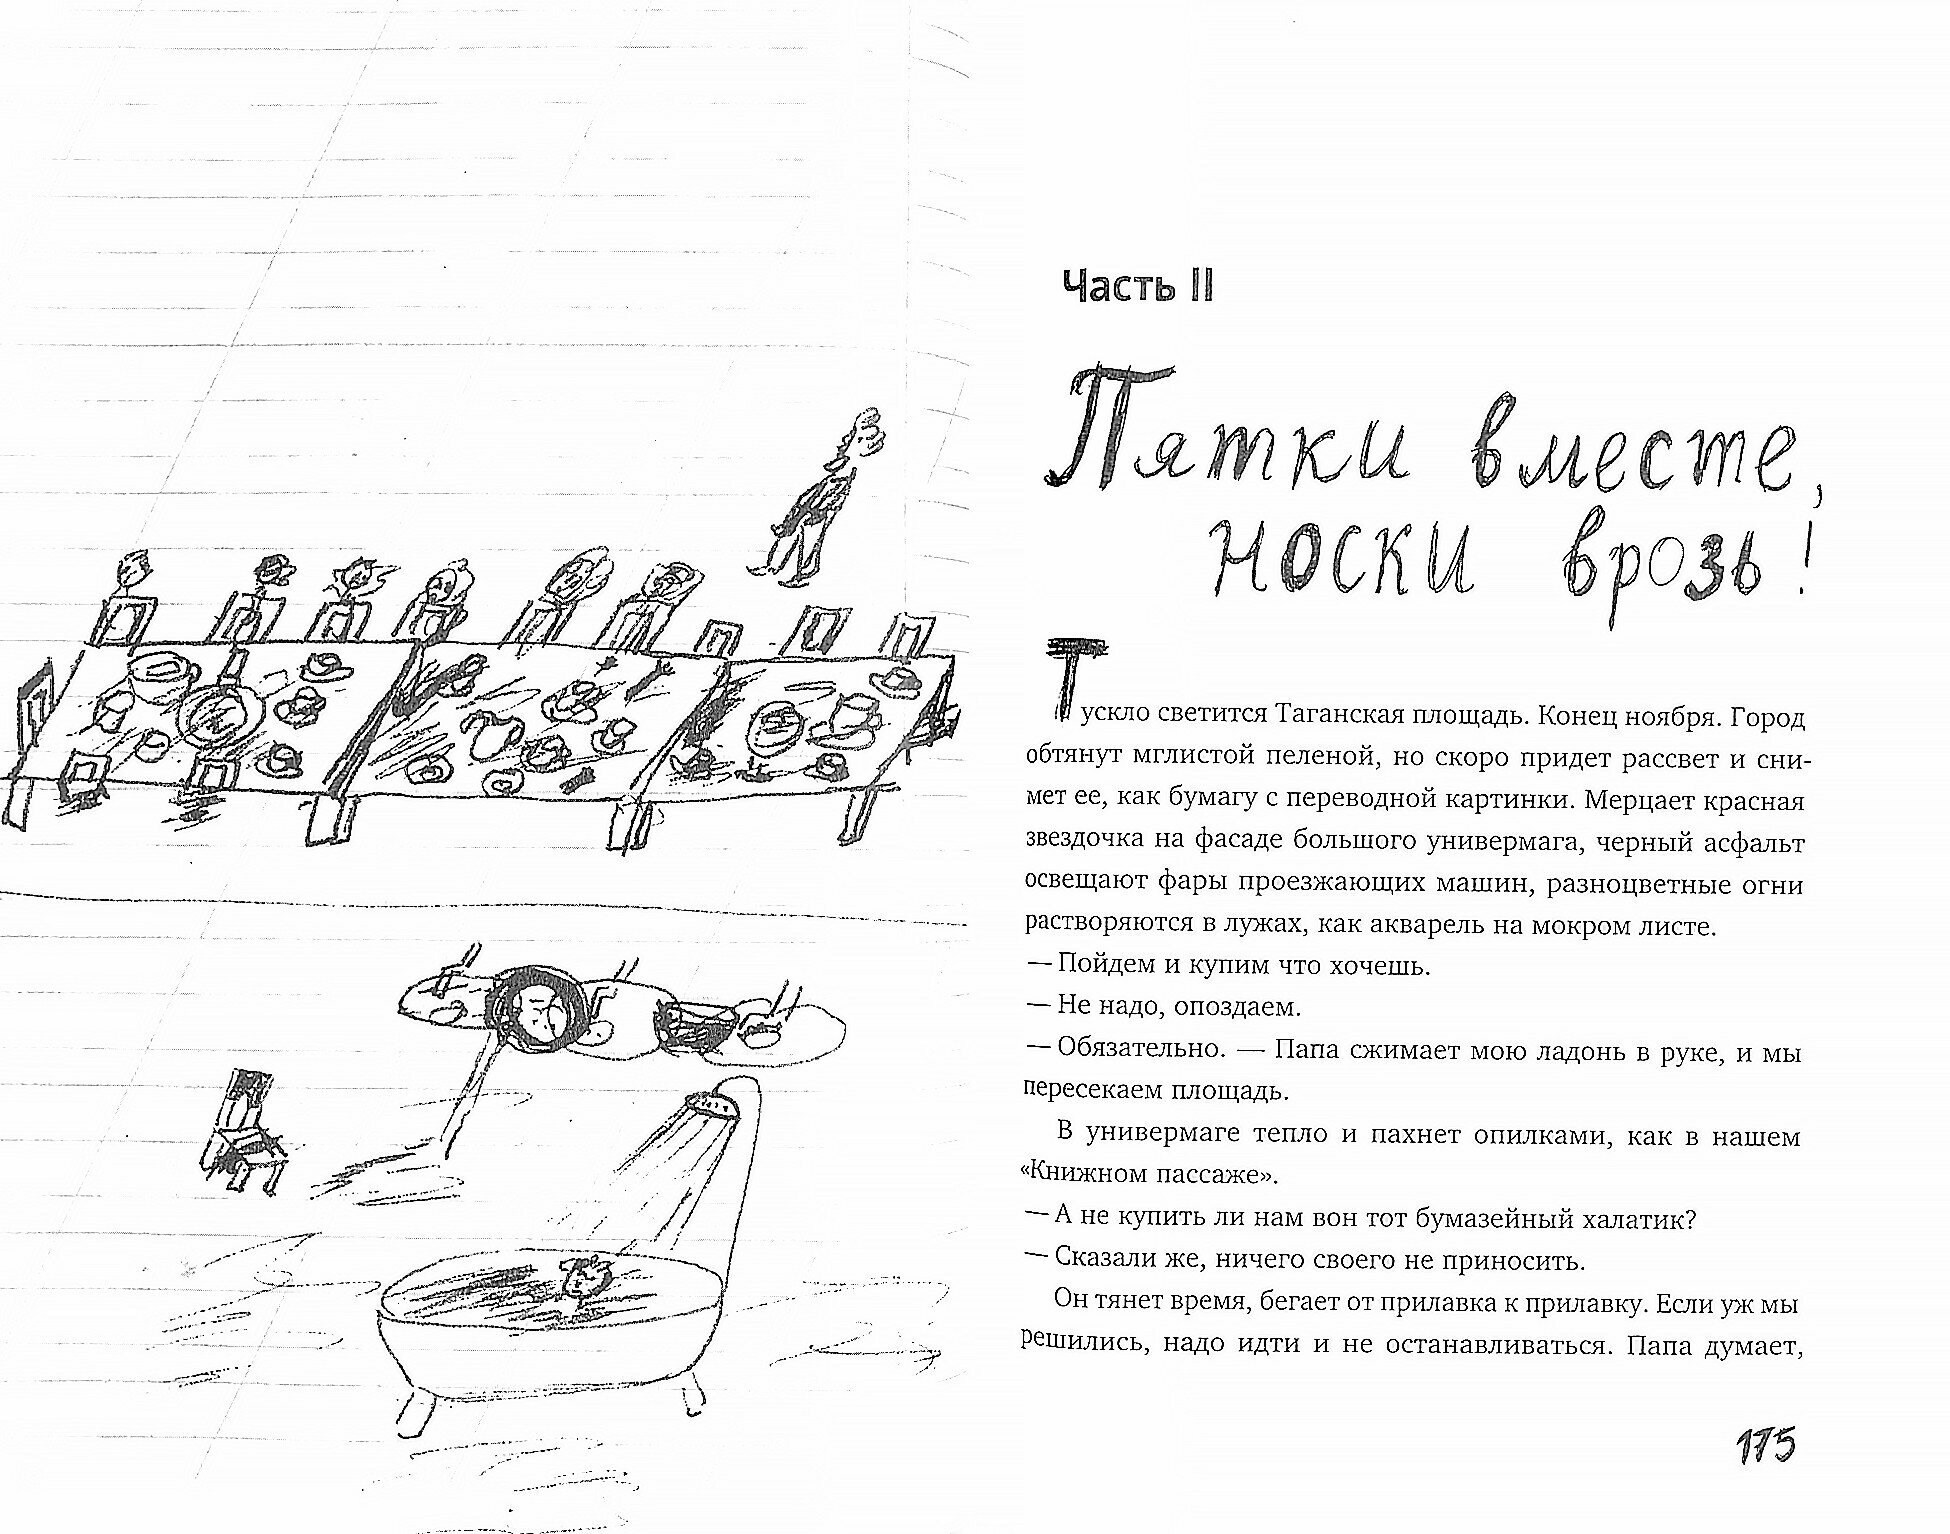 Часть II
Пятки вместе,
носки врозь!
Тускло светится Таганская площадь. Конец ноября. Город
обтянут мглистой пеленой, но скоро придет рассвет и сни-
мет ее, как бумагу с переводной картинки. Мерцает красная
звездочка на фасаде большого универмага, черный асфальт
освещают фары проезжающих машин, разноцветные огни
растворяются в лужах, как акварель на мокром листе.
— Пойдем и купим что хочешь.
— Не надо, опоздаем.
— Обязательно. — Папа сжимает мою ладонь в руке, и мы
пересекаем площадь.
В универмаге тепло и пахнет опилками, как в нашем
«Книжном пассаже».
— А не купить ли нам вон тот бумазейный халатик?
— Сказали же, ничего своего не приносить.
Он тянет время, бегает от прилавка к прилавку. Если уж мы
решились, надо идти и не останавливаться. Папа думает,
175